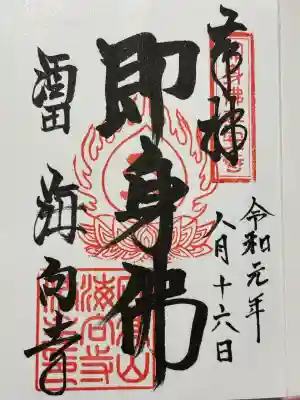 奉拝
令和元年
八月十六日
即身佛
酒田
海向寺